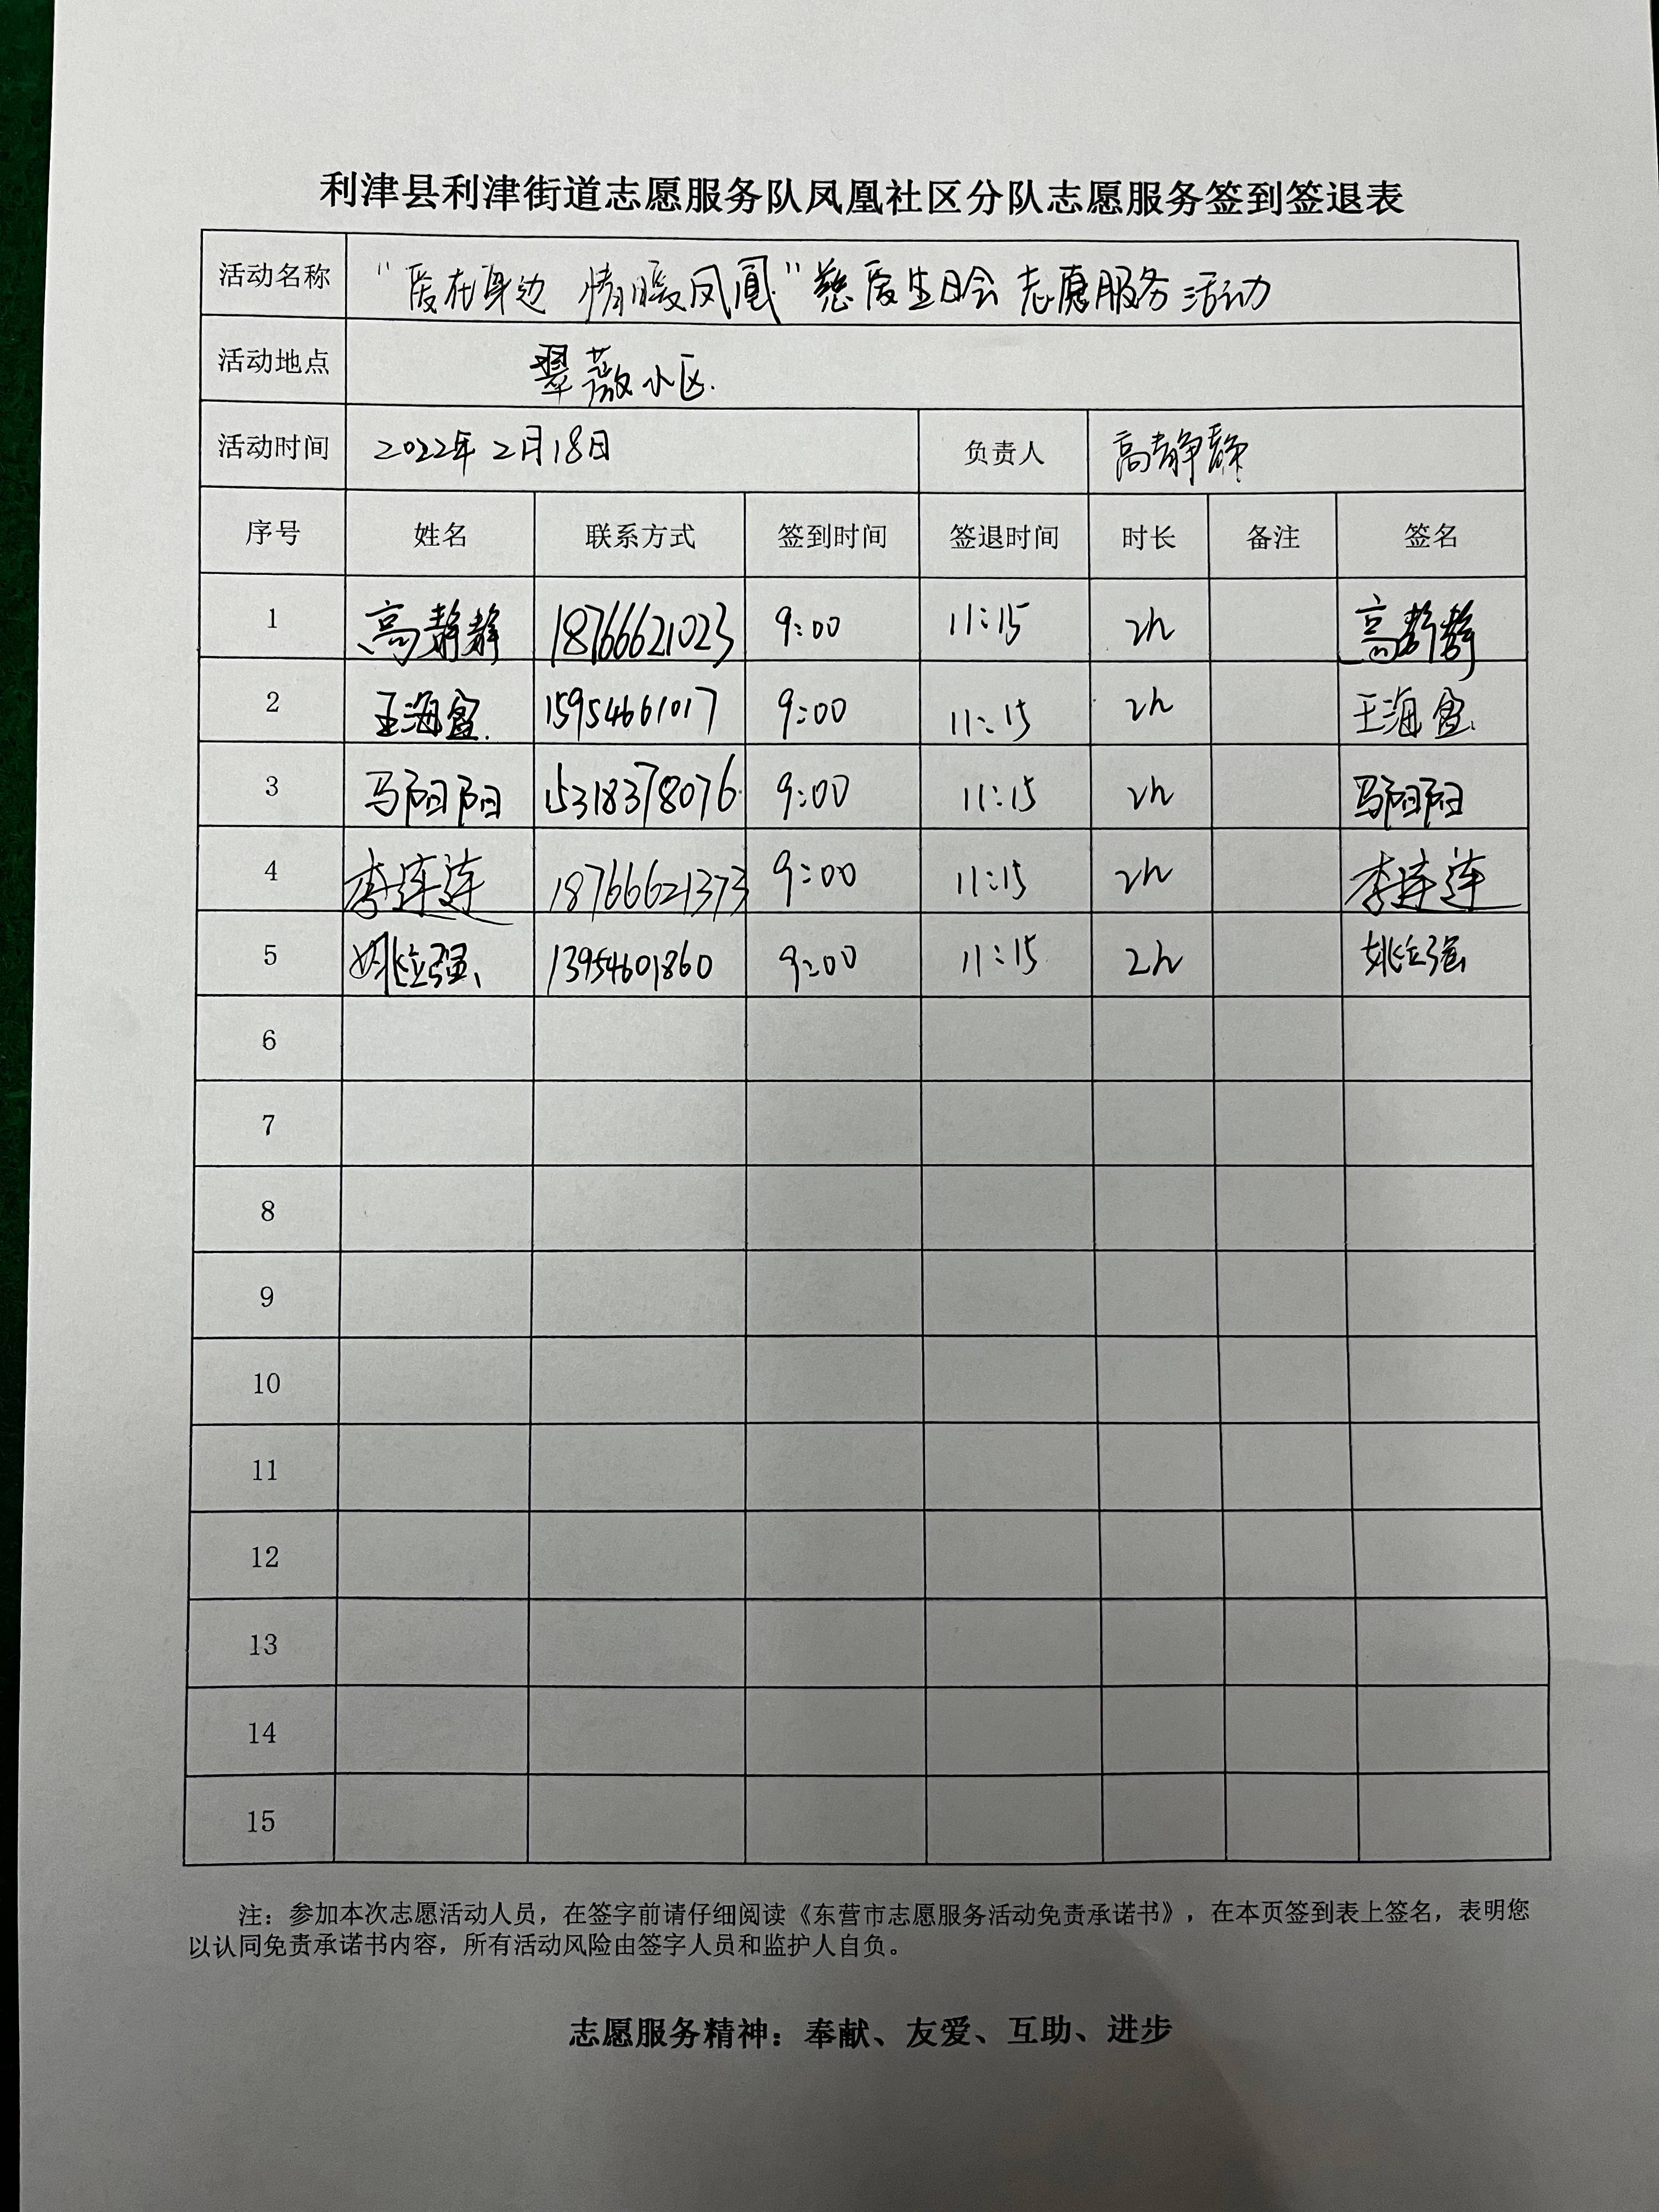 利津县利津街道志愿服务队凤凰社区分队志愿服务签到签退表
活动名称 “爱在身边 情暖凤凰”慈爱生日会志愿服务活动
活动地点 翠薇小区.
活动时间 2022年2月18日 负责人 高静静
序号 姓名 联系方式 签到时间 签退时间 时长 备注 签名
1 高静静 18766621023 9:00 11:15 2h 高静静
2 王海 15954661017 9:00 11:15 2h 王海
3 马阳阳 15318378076 9:00 11:15 2h 马阳阳
4 李连连 18766621373 9:00 11:15 2h 李连连
5 姚立强 13954601860 9:00 11:15 2h 姚立强
6
7
8
9
10
11
12
13
14
15
注：参加本次志愿活动人员，在签字前请仔细阅读《东营市志愿服务活动免责承诺书》，在本页签到表上签名，表明您
以认同免责承诺书内容，所有活动风险由签字人员和监护人自负。
志愿服务精神：奉献、友爱、互助、进步